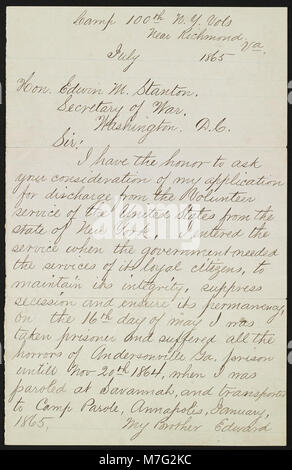 Camp 100th N.Y. Vols
Near Richmond,
Va.
July 1865
Hon. Edwin M. Stanton,
Secretary of War,
Washington D.C.
Sir:
I have the honor to ask
your consideration of my application
for discharge from the Volunteer
service of the United States from the
state of New York. I entered the
service when the government needed
the services of its loyal citizens, to
maintain its integrity, suppress
secession and ensure its permanency,
on the 16th day of may I was
taken prisoner and suffered all the
horrors of Andersonville Ga. prison
untill Nov 20th 1864, when I was
paroled at Savannah, and transported
to Camp Parole, Annapoles, January,
1865, My Brother Edward
alamy
Image ID: M7G2KC
www.alamy.com